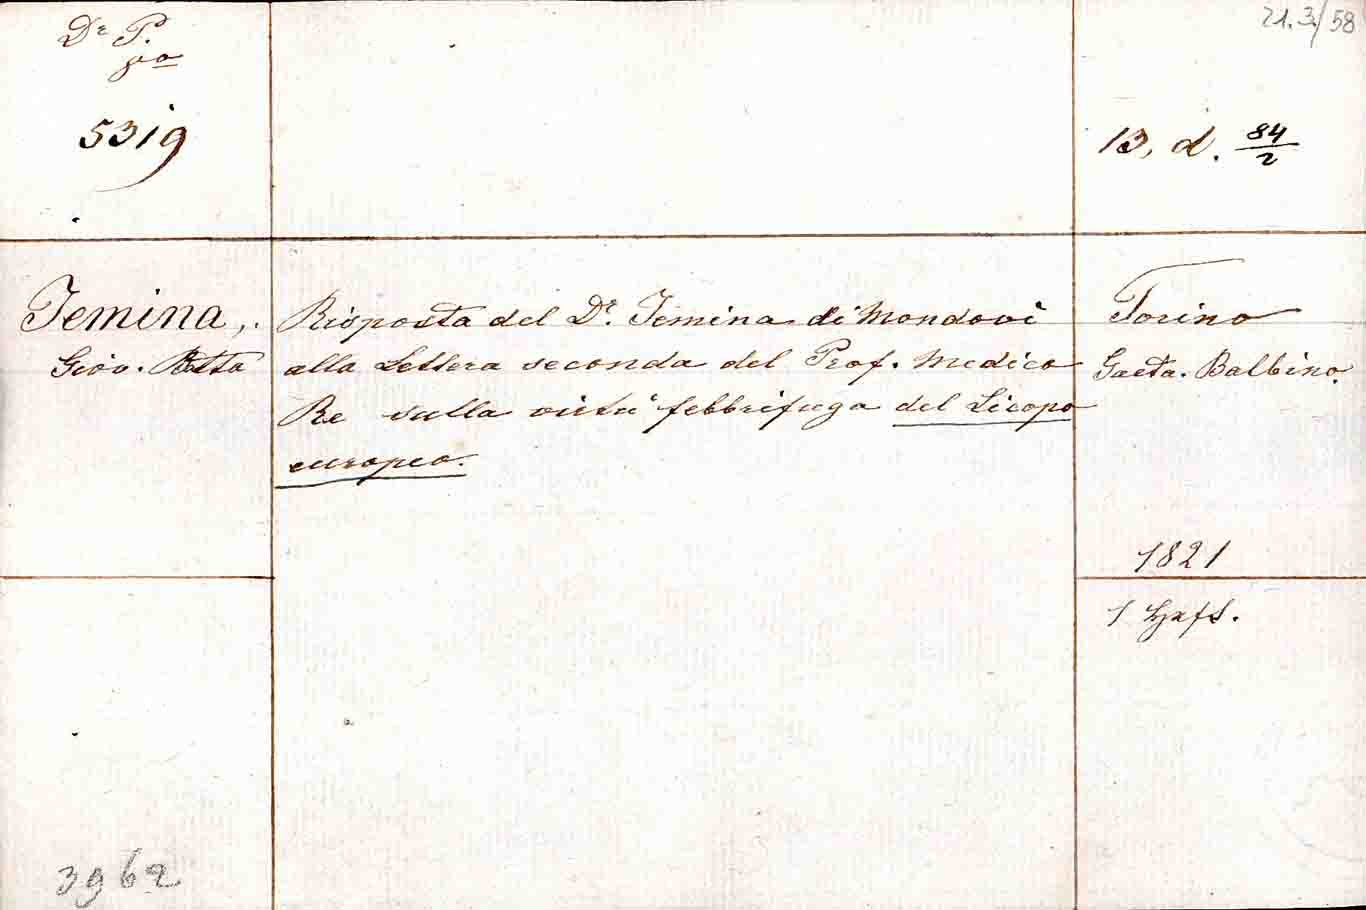 Dr P.
8vo
5319
21.3./58
13, d. 84/2
Jemina,
Giov. Btta
Risposta del Dr. Jemina di Mondovì
alla Lettera seconda del Prof. Medico
Re sulla virtù febbrifuga del Licopo
europeo.
Torino
Gaeta. Balbino.
1821
1 Heft.
3962